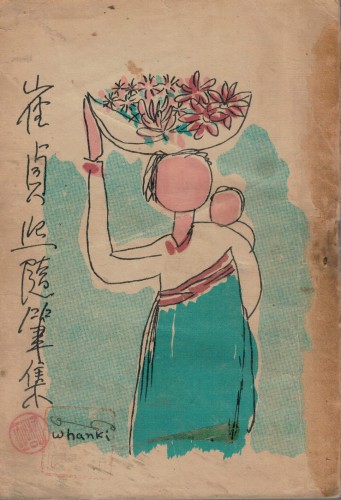 崔貞熙隨筆集
whanki